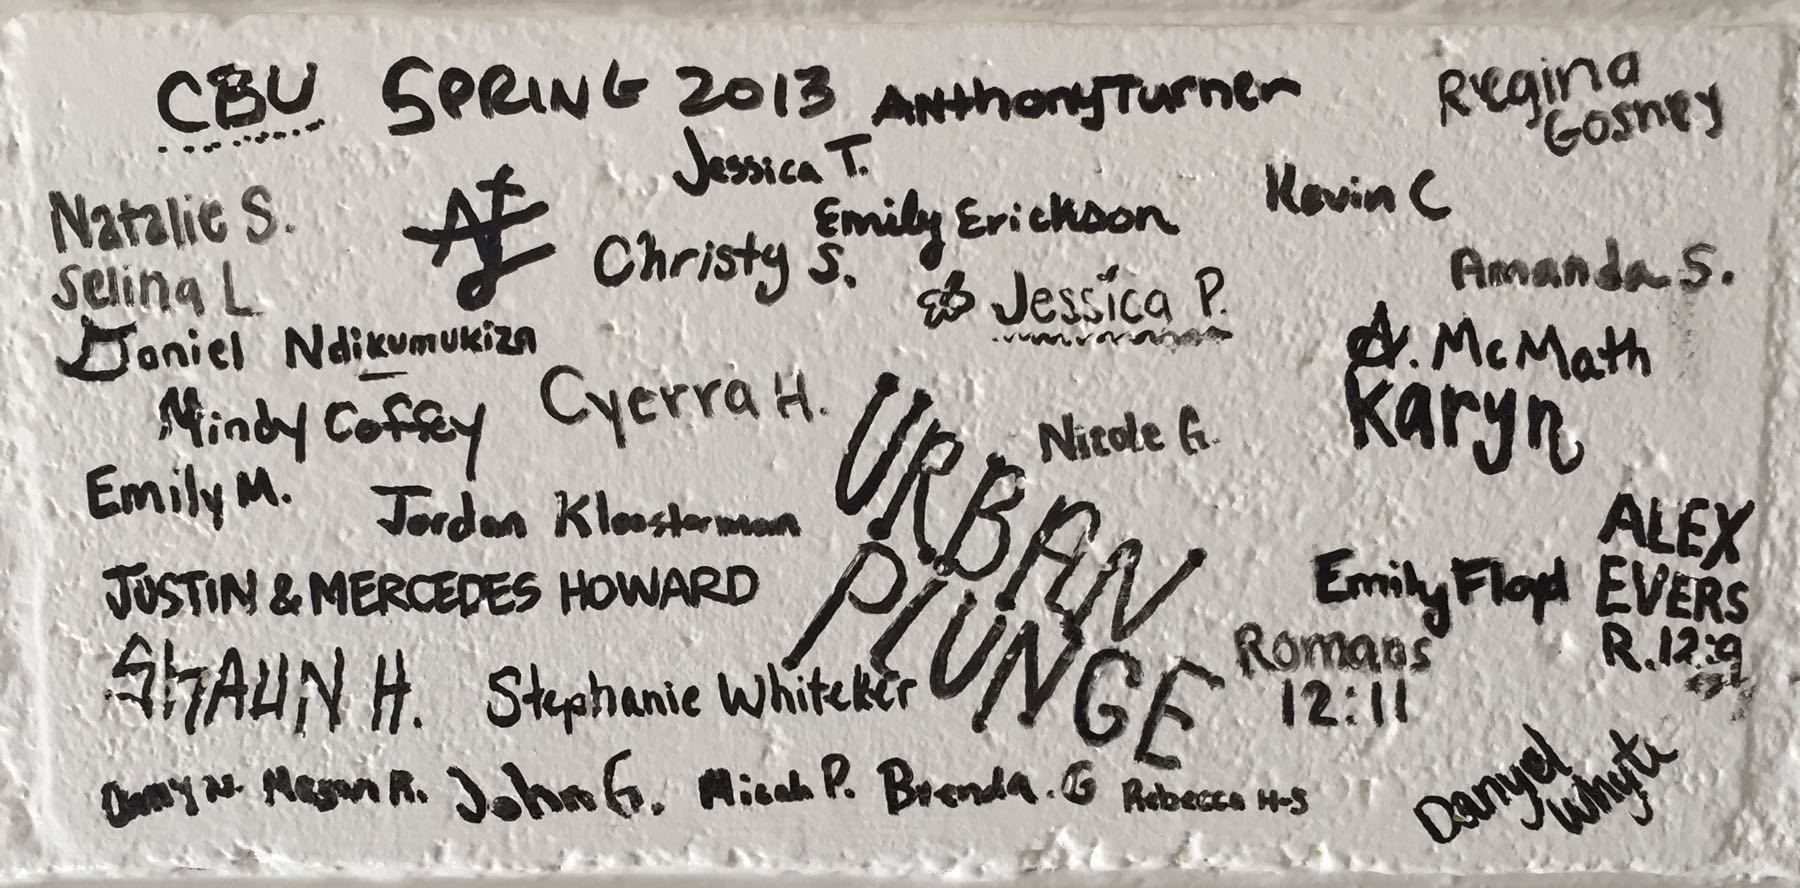 CBU SPRING 2013
Anthony Turner
Regina
Gosney
Jessica T.
Kevin C
Natalie S.
AJ
Emily Erickson
Christy S.
Amanda S.
Selina L
Jessica P.
Daniel Ndikumukiza
A. McMath
Cyerra H.
Karyn
Mindy Coffey
Nicole G.
URBAN
PLUNGE
Emily M.
Jordan Kloosterman
ALEX
EVERS
R.12:9
JUSTIN & MERCEDES HOWARD
Emily Floyd
Romans
12:11
SHAUN H.
Stephanie Whiteker
Megan R.
John G.
Micah P.
Brenda.G
Rebecca H-S
Danyel
Whyte